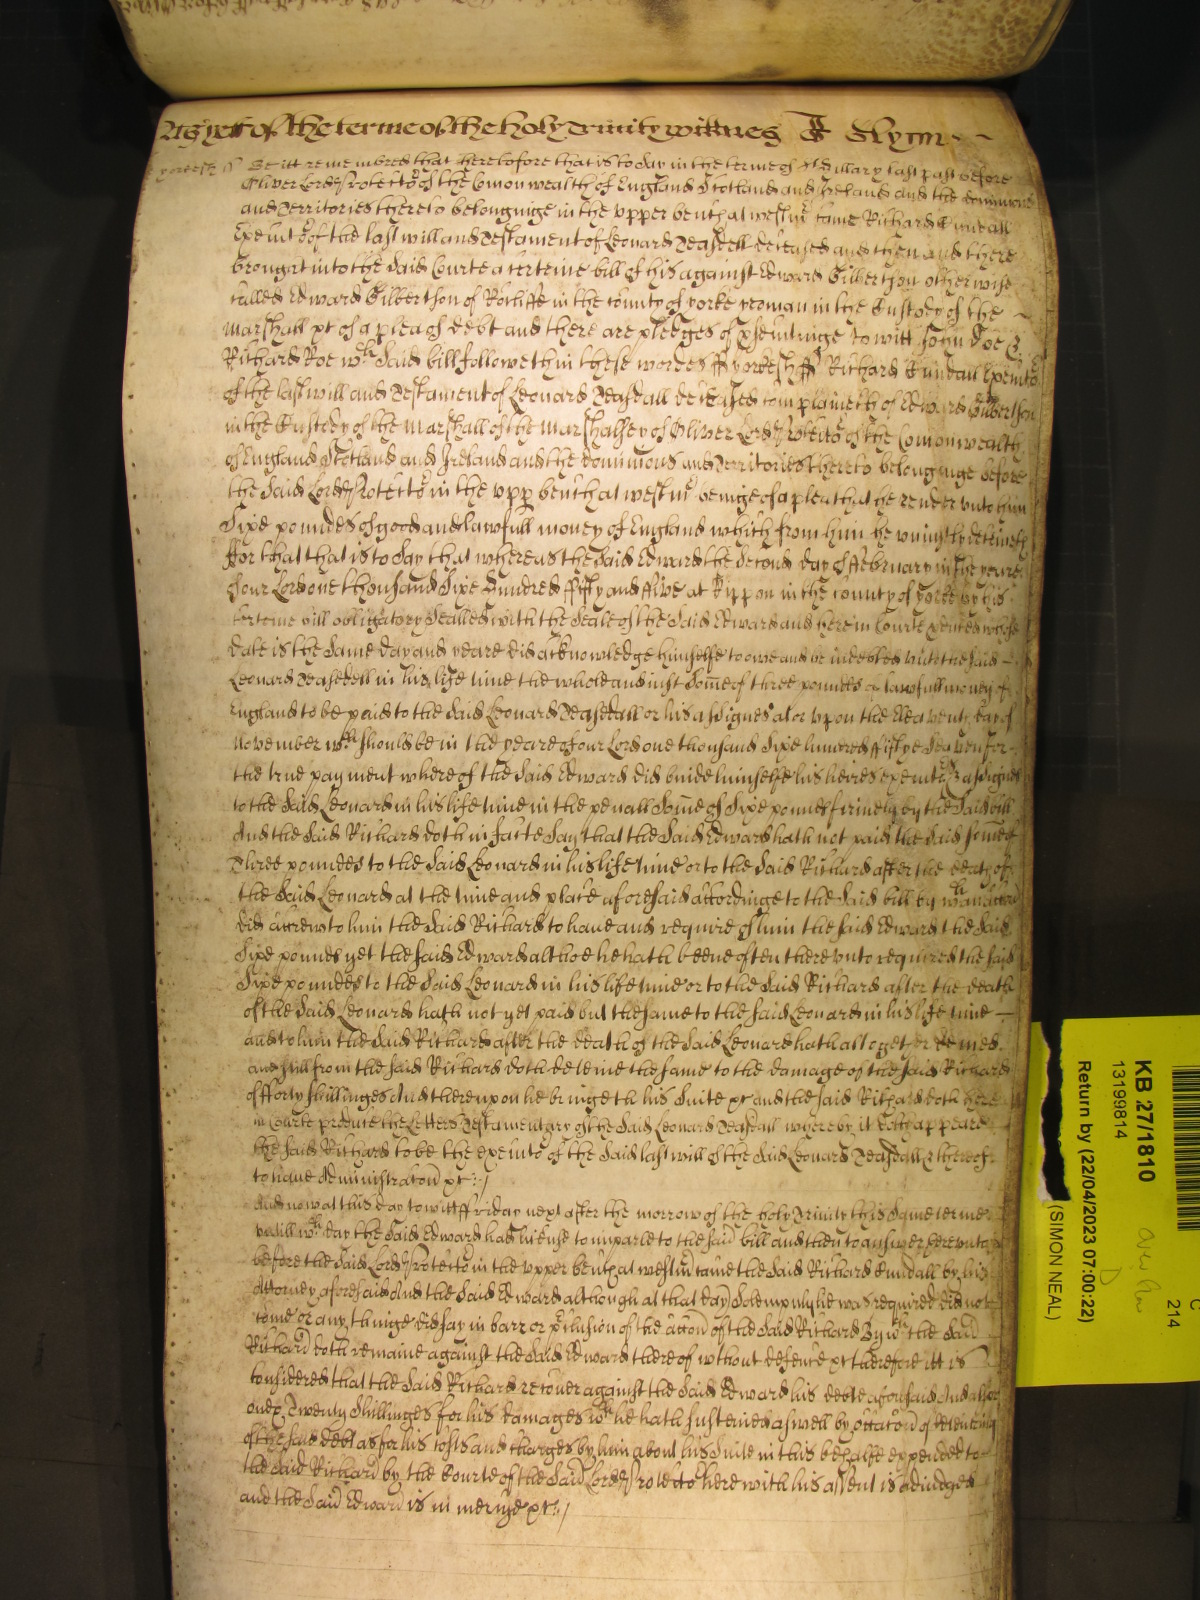 As yett of the terme of the holy Trinity wittnes J Glynn
yorksh ss Be itt remembred that heretofore that is to say in the terme of St Hillary last past before
Oliver Lord Protector of the Comonwealth of England Scotland and Ireland and the dominions
and Territories thereto belonginge in the upper bench at westmr came Richard Cundall
Executor of the last will and Testament of Leonard Teasdell deceased and then and there
brought into the said Courte a certeine bill of his against Edward Gilbertson otherwise
called Edward Gilbertson of Rocliffe in the county of yorke yeoman in the Custody of the
Marshall &c of a plea of debt and there are pledges of prosecutinge to witt John Doe &
Richard Roe wch said bill followeth in these wordes ss yorksh ss Richard Cundall Executor
of the last will and Testament of Leonard Teasdall deceased complaineth of Edward Gilbertson
in the Custody of the Marshall of the Marshalsey of Oliver Lord Protector of the Comonwealth
of England Scotland and Ireland and the dominions and Territories thereto belonginge before
the said Lord Protector in the upp bench at westmr beinge of a plea that he render unto him
Sixe poundes of good and lawfull money of England which from him he uniustly deteineth
ffor that that is to say that whereas the said Edward the second day of ffebruary in the yeare
of our Lord one thousand Sixe hundred ffifty and ffive at Rippon in the county of yorke by his
certeine bill obligatory sealled with the seale of the said Edward and here in Courte shewed whose
date is the same day and yeare did acknowledge himselfe to owe and be indebted unto the said
Leonard Teasdell in his life time the whole and iust some of three poundes of lawfull money of
England to be paid to the said Leonard Teasdall or his assignes at or upon the Eleaventh day of
November wch should be in the yeare of our Lord one thousand Sixe hundred ffiftye Seaven for
the true payment whereof the said Edward did binde himselfe his heires executors & assignes
to the said Leonard in his life time in the penall some of Sixe poundes firmely by the said bill
And the said Richard doth in facte say that the said Edward hath not paid the said some of
Three poundes to the said Leonard in his life time or to the said Richard after the death of
the said Leonard at the time and place aforesaid accordinge to the said bill by wch an action
did accrew to him the said Richard to have and require of him the said Edward the said
Sixe poundes yet the said Edward althoe he hath beene often thereunto required the said
Sixe poundes to the said Leonard in his life time or to the said Richard after the death
of the said Leonard hath not yet paid but the same to the said Leonard in his life time
and to him the said Richard after the death of the said Leonard hath altogether denied
and still from the said Richard doth deteine the same to the damage of the said Richard
of fforty shillinges And thereupon he bringeth his Suite &c and the said Richard doth here
in Courte produce the Letters Testamentary of the said Leonard Teasdall whereby it doth appeare
the said Richard to be the executor of the said last will of the said Leonard Teasdall & thereof
to have Administration &c
And now at this day to witt ffriday next after the morrow of the holy Trinity this same terme
untill wch day the said Edward had license to imparle to the said bill and then to answer thereunto
before the said Lord Protector in the upper bench at westmr came the said Richard Cundall by his
Attorney aforesaid And the said Edward although at that day Solempnly he was required did not
come or any thinge did say in barr or preclusion of the action of the said Richard By wch the said
Richard doth remaine against the said Edward thereof without defence &c therefore itt is
considered that the said Richard recover against the said Edward his debt aforesaid And also
over Twenty Shillinges for his damages wch he hath susteined aswell by occasion of deteininge
of the said debt as for his costs and charges by him about his Suite in this behalfe expended to
the said Richard by the Courte of the said Lord Protector here with his assent is adiudged
and the said Edward is in mercye &c
KB 27/1810
13199814
Return by (22/04/2023 07:00:22)
(SIMON NEAL)
214